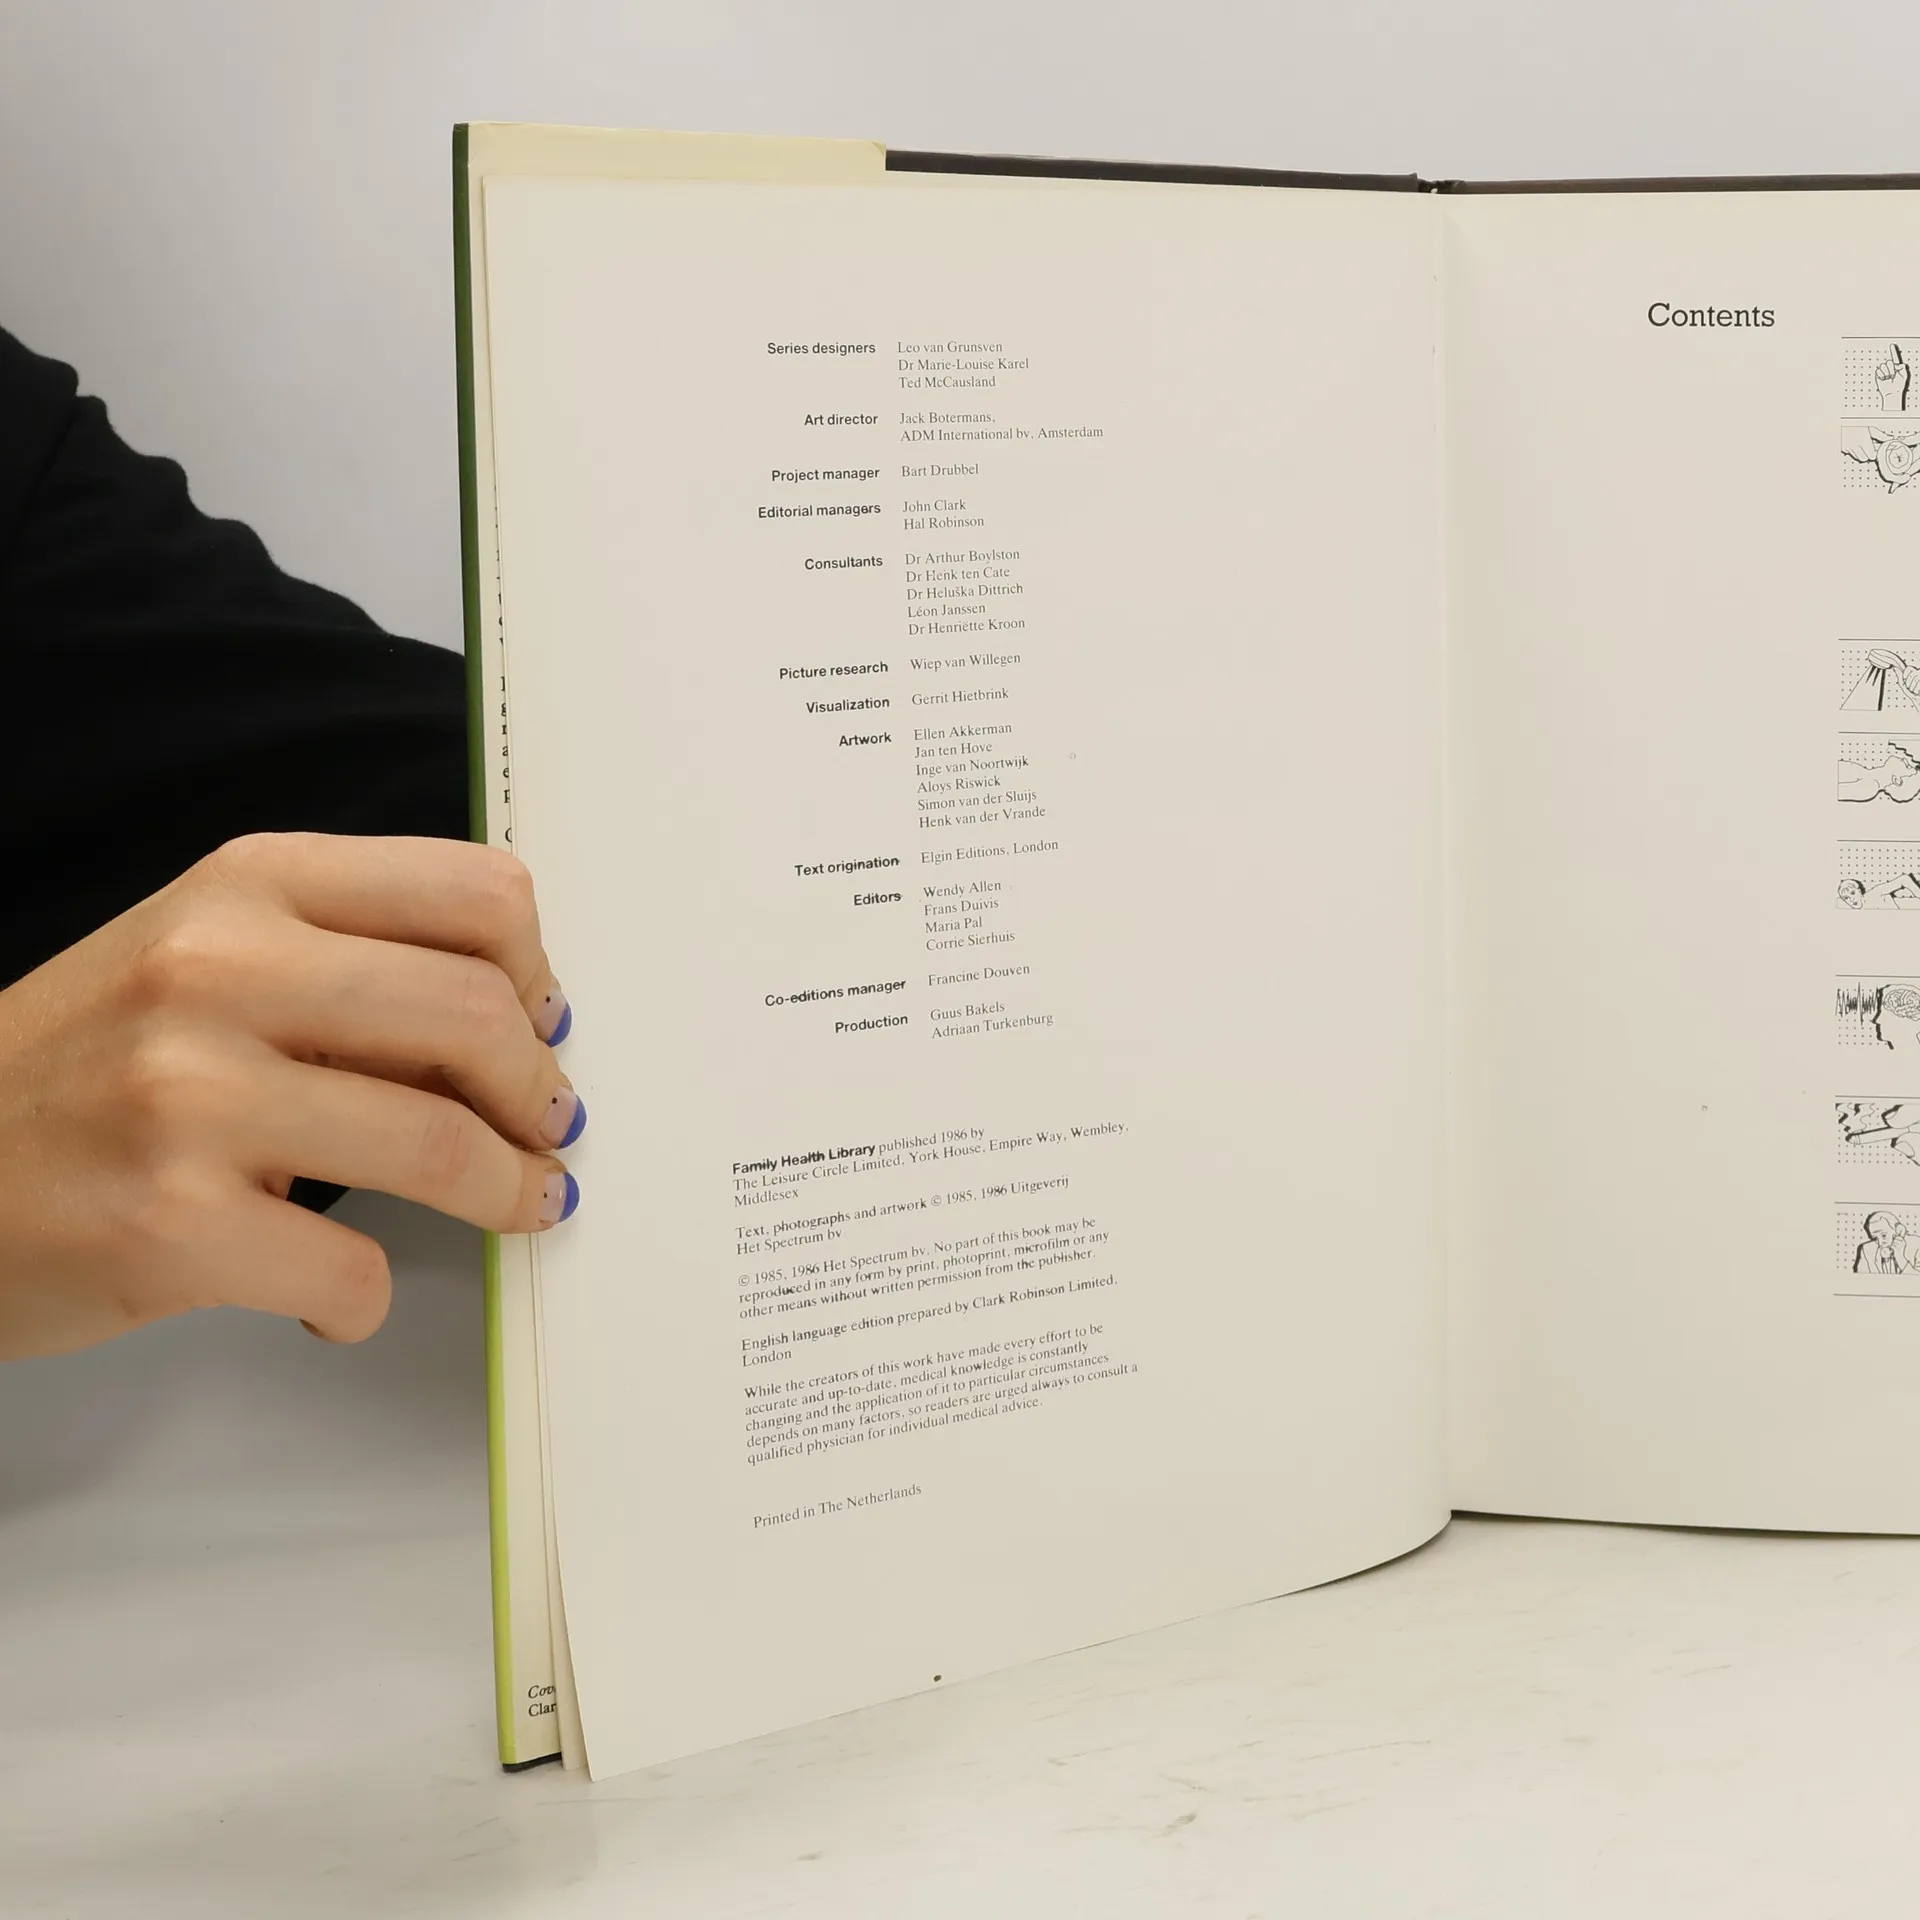 Series designers Leo van Grunsven
Dr Marie-Louise Karel
Ted McCausland
Art director Jack Botermans,
ADM International bv, Amsterdam
Project manager Bart Drubbel
Editorial managers John Clark
Hal Robinson
Consultants Dr Arthur Boylston
Dr Henk ten Cate
Dr Heluška Dittrich
Léon Janssen
Dr Henriëtte Kroon
Picture research Wiep van Willegen
Visualization Gerrit Hietbrink
Artwork Ellen Akkerman
Jan ten Hove
Inge van Noortwijk
Aloys Riswick
Simon van der Sluijs
Henk van der Vrande
Text origination Elgin Editions, London
Editors Wendy Allen
Frans Duivis
Maria Pal
Corrie Sierhuis
Co-editions manager Francine Douven
Production Guus Bakels
Adriaan Turkenburg
Family Health Library published 1986 by
The Leisure Circle Limited, York House, Empire Way, Wembley,
Middlesex
Text, photographs and artwork © 1985, 1986 Uitgeverij
Het Spectrum bv
© 1985, 1986 Het Spectrum bv. No part of this book may be
reproduced in any form by print, photoprint, microfilm or any
other means without written permission from the publisher.
English language edition prepared by Clark Robinson Limited,
London
While the creators of this work have made every effort to be
accurate and up-to-date, medical knowledge is constantly
changing and the application of it to particular circumstances
depends on many factors, so readers are urged always to consult a
qualified physician for individual medical advice.
Printed in The Netherlands
Contents